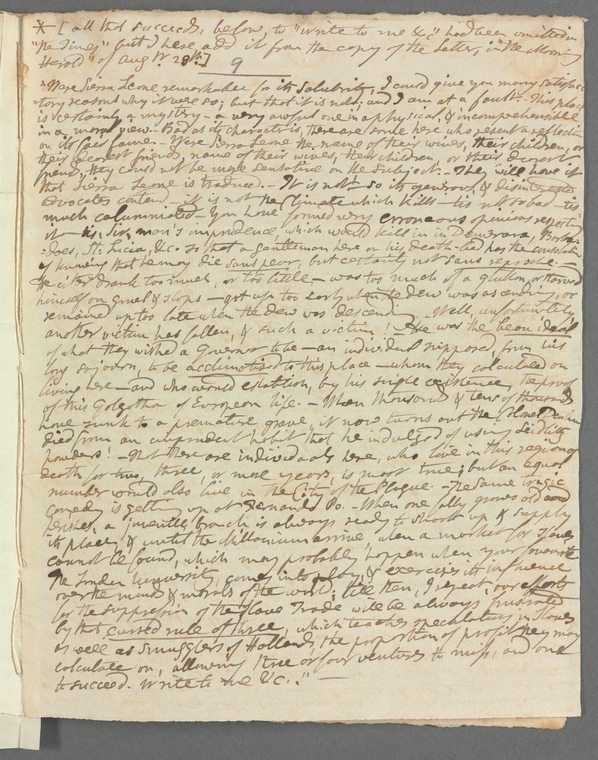 * [all that succeeds, below, to "write to me &c" had been omitted in
"the Times" but I here add it from the copy of the letter, in the Morning
Herald" of Augst 28th.]
9
"Were Sierra Leone remarkable for its salubrity, I could give you many satisfac-
tory reasons why it were so; but that it is not; and I am at a fault. This place
is certainly a mystery - a very awful one in a physical, & incomprehensible
in a moral view. Bad as its character is, there are some here who resent a reflection
on its fair fame. - Were Sierra Leone the name of their wives, their children, or
their dearest friends, name of their wives, their children or their dearest
friend, they could not be more sensitive on the subject. - They will have it
that Sierra Leone is traduced. - It is not so its generous & disinterested
advocates contend, it is not the Climate which kills - tis not so bad - tis
much calumniated - You have formed very erroneous opinions respecting
it - tis, Sir, man's imprudence, which would kill in Demerara, Barba-
does, St. Lucia, &c. so that a gentleman here on his death-bed has the consolation
of knowing that he may die sans peur, but certainly not sans reproche. -
He either drank too much, or too little - was too much of a glutton, or starved
himself on gruel & slops - got up too early when the dew was ascending, or
remained up too late when the dew was descending. - Well, unfortunately,
another victim has fallen, & such a victim! - He was the beau ideal
of what they wished a Governor to be - an individual supposed, from his
long sojourn, to be acclimatised to this place - whom they calculated on
living here - and who would establish, by his single existence, the proof
of this Golgotha of European life. - When thousands & tens of thousands
have sunk to a premature grave, it now turns out that Colonel Denham
died from an imprudent habit that he indulged of using Seidlitz
powders! - That there are individuals here, who live in this region of
death for two, three, or more years, is most true; but an equal
number would also live in the City of the Plague. - The same tragic
comedy is getting up at Fernando Po. - When one folly grows old and
perishes, a juvenile branch is always ready to shoot up & supply
its place; & until the Millennium arrive when a market for slaves
cannot be found, which may probably happen when your favourite
the London University, comes into play, & exercises its influence
over the minds & morals of the world; till then, I repeat, our efforts
for the suppression of the Slave Trade will be always frustrated
by that cursed rule of three, which teaches speculators in slaves
as well as smugglers of Hollands, the proportion of profit they may
calculate on, allowing three or four ventures to miss, and one
to succeed. Write to me &c." -